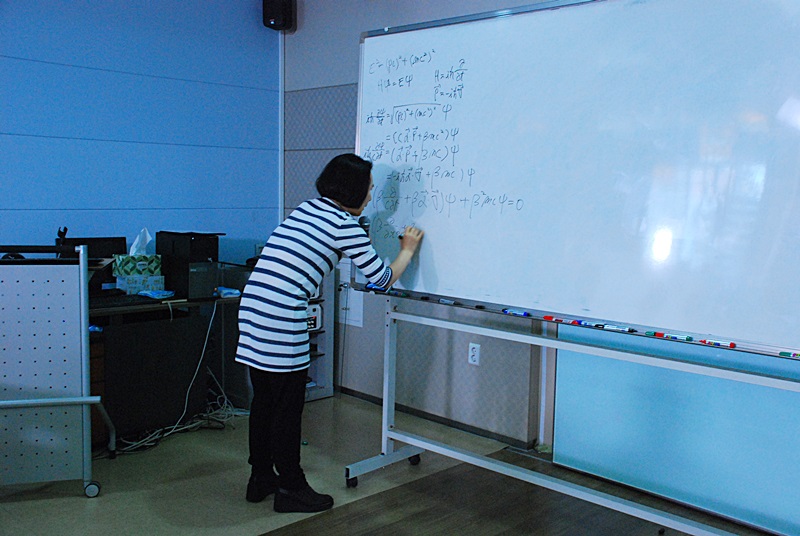 E²=(pc)²+(mc²)²
Hψ=Eψ H=iħ∂/∂t
p⃗=-iħ∇⃗
iħ ∂ψ/∂t=√((pc)²+(mc²)²) ψ
=(cα⃗·p⃗+βmc²)ψ
iħ ∂ψ/c∂t=(α⃗·p⃗+βmc)ψ
=(-iħα⃗·∇⃗+βmc)ψ
+βα⃗·∇⃗)ψ+β²mcψ=0